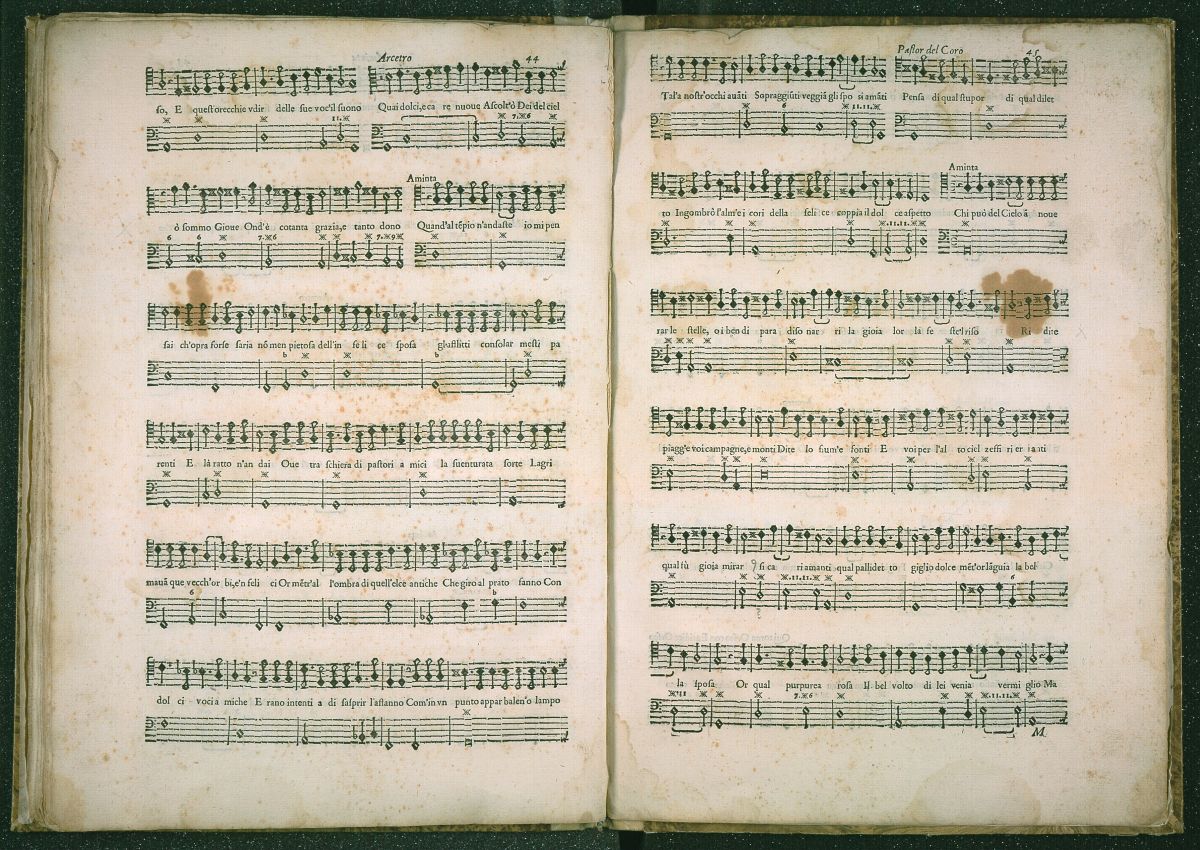 Arcetro 44
so, E quest'orecchie vdir delle sue voc'il suono Quai dolci,e ca re nuoue Ascolt'ò Dei del ciel
11.
7. 6
ò sommo Gioue Ond'è cotanta grazia,e tanto dono
Aminta
Quand'al tẽpio n'andaste io mi pen
6 6 7. 6
sai ch'opra forse saria nõ men pietosa dell'in feli ce sposa gl'afflitti consolar mesti pa
b b
renti E là ratto n'an dai Oue tra schiera di pastori a mici la suenturata sorte Lagri
mauã que vecch'or bi,e'n feli ci Or mẽtr'al l'ombra di quell'elce antiche Che giro al prato fanno Con
6 b
dol ci voci a miche E rano intenti a di sasprir l'affanno Com'in vn punto appar balen'o lampo
Pastor del Coro 45
Tal'a nostr'occhi auãti Sopraggiũti veggiã gli spo si amãti Pensa di qual stupor di qual dilet
6 11.11.
to Ingombrò l'alm'e i cori della feli ce coppia il dol ce aspetto
Aminta
Chi può del Cielo ã noue
11.11.
rar le stelle, o i ben di para diso nar ri la gioia lor la fe ste'l riso Ri dite
piagg'e voi campagne,e monti Dite lo fium'e fonti E voi per l'al to ciel zeffi ri er ranti
qual fù gioia mirar si ca ri amanti qual pallidet to giglio dolce mẽt'or lãguia la bel
11.11. 6
la sposa Or qual purpurea rosa Il bel volto di lei venia vermi glio Ma
11 7.6 11.11.
M